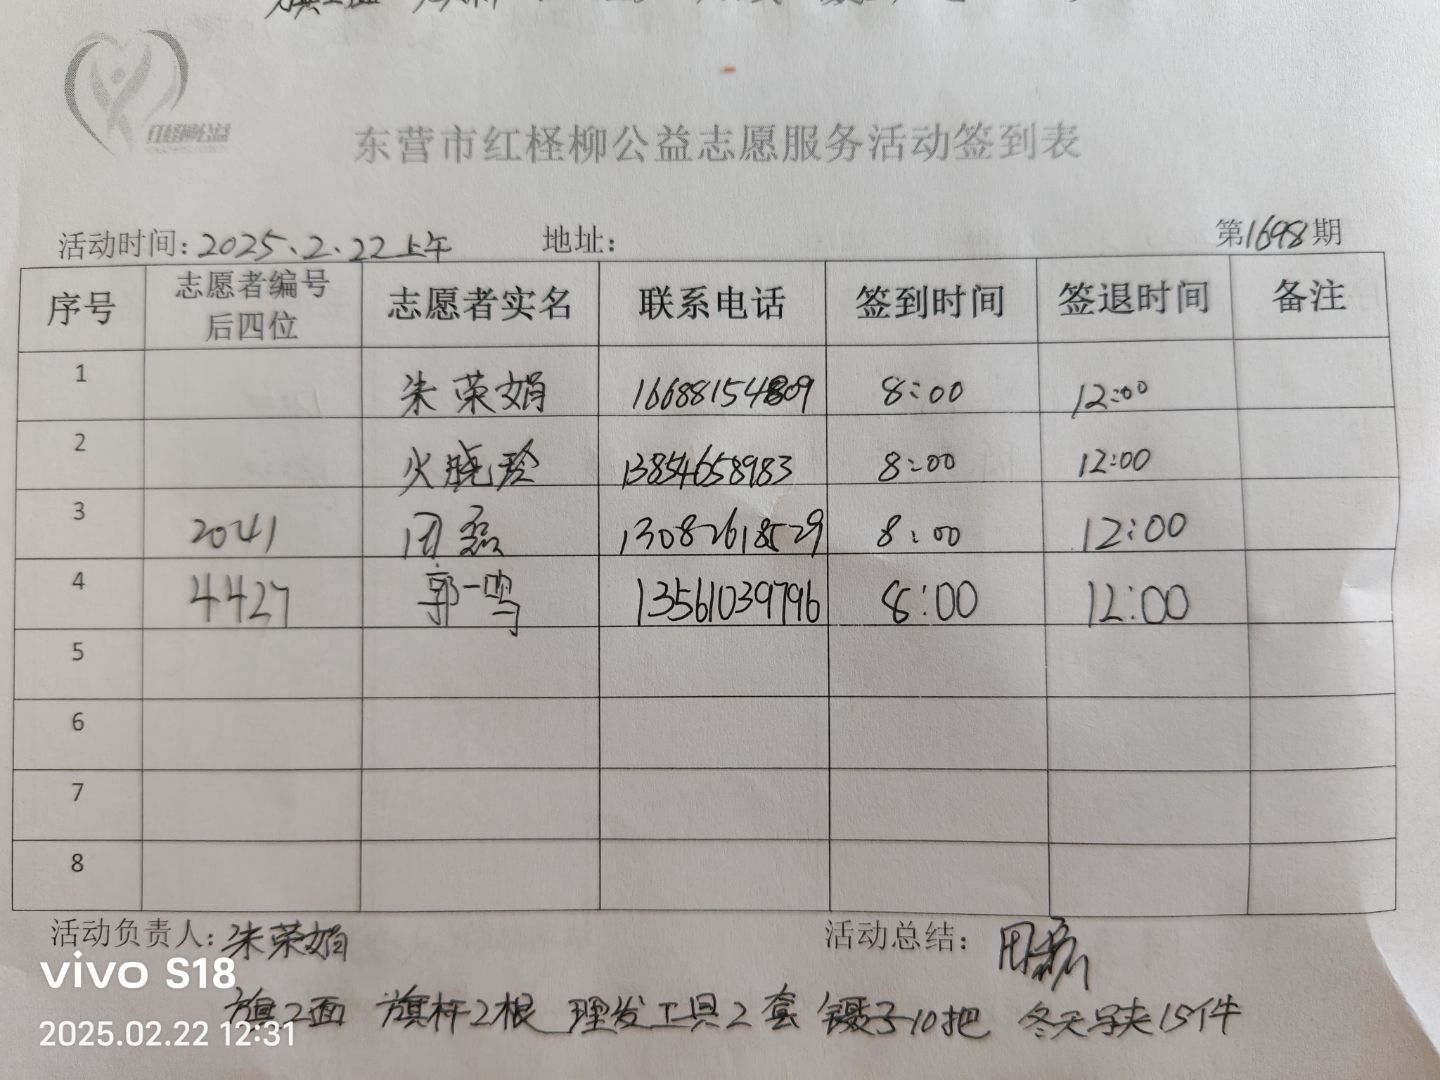 红柽柳公益
东营市红柽柳公益志愿服务活动签到表
活动时间: 2025.2.22上午 地址: 第1698期
序号 志愿者编号后四位 志愿者实名 联系电话 签到时间 签退时间 备注
1 朱荣娟 16688154809 8:00 12:00
2 火晓玲 13854658983 8:00 12:00
3 2041 周磊 13082618529 8:00 12:00
4 4427 郭一鸣 13561039796 8:00 12:00
5
6
7
8
活动负责人: 朱荣娟 活动总结: 周磊
旗2面 旗杆2根 理发工具2套 镊子10把 冬天马夹15件
vivo S18
2025.02.22 12:31